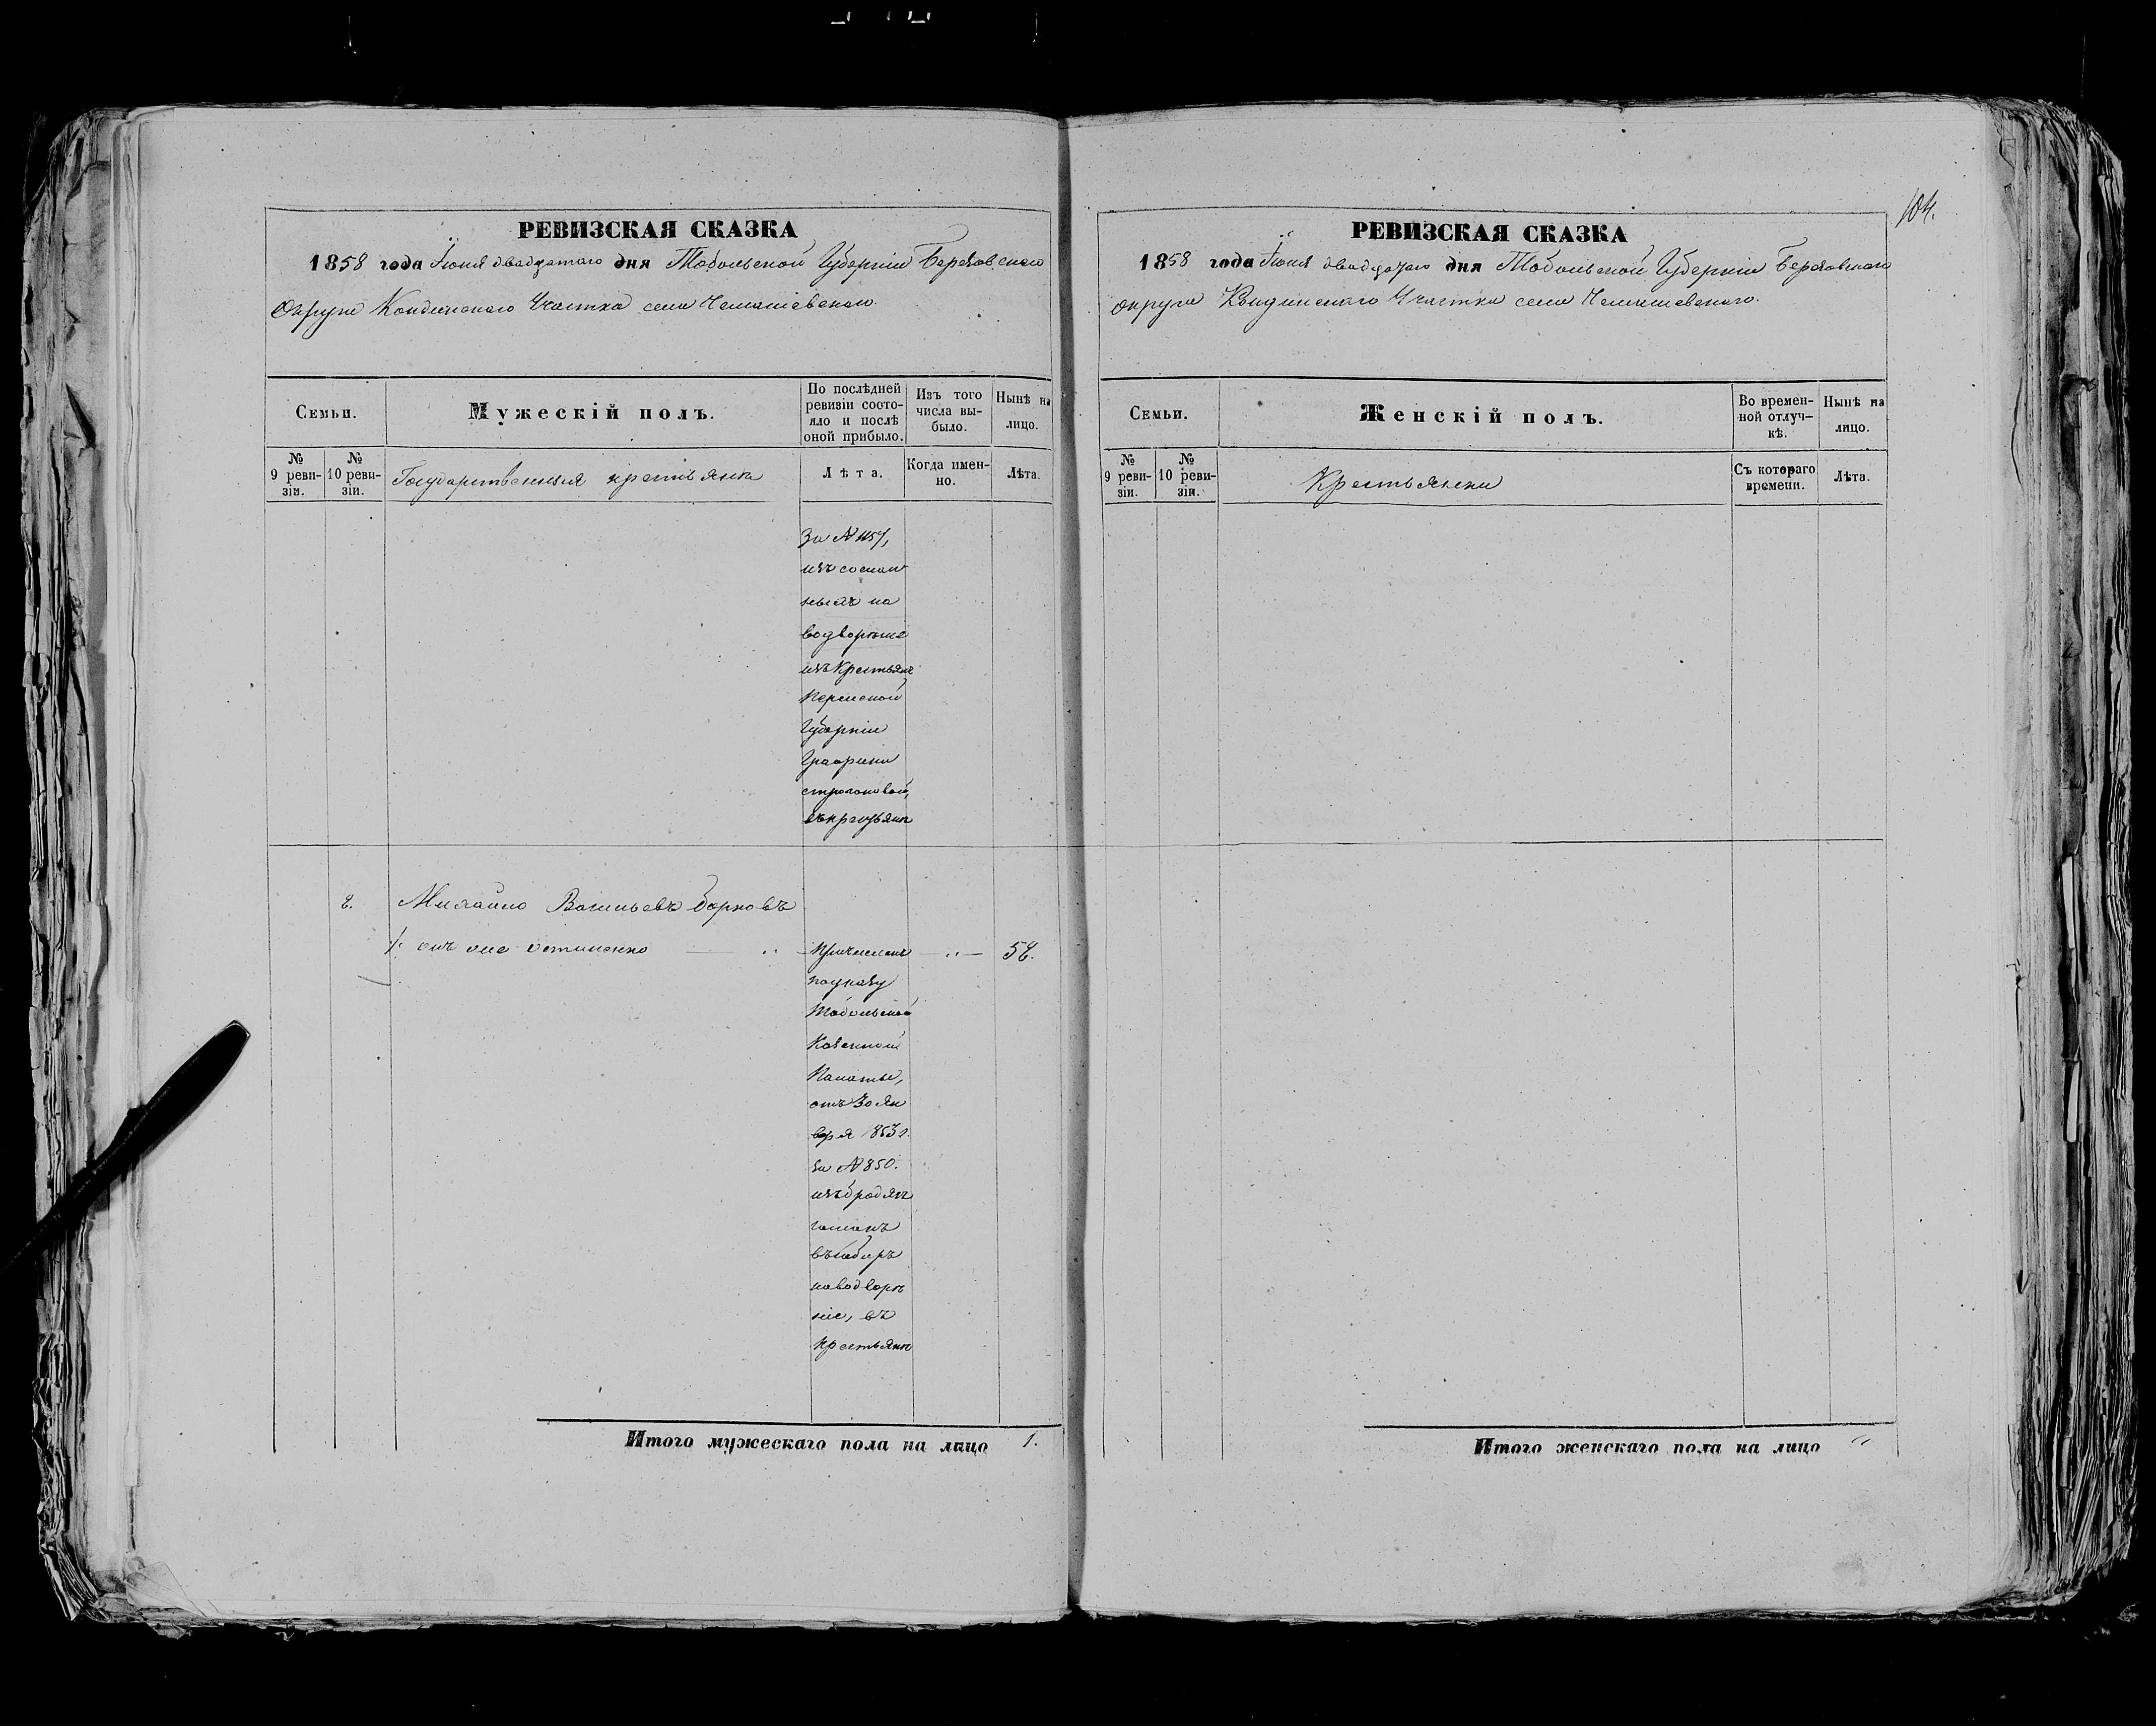 РЕВИЗСКАЯ СКАЗКА
1858 года Іюня двадцатаго дня Тобольской Губерніи Березовскаго
Округа Кондинскаго Участка села Чемашевскаго.
Семьи.
Мужескій полъ.
По послѣдней ревизіи состо-
яло и послѣ оной прибыло.
Изъ того числа вы-
было.
Нынѣ на лицо.
№ 9 реви-
зіи.
№ 10 реви-
зіи.
Государственныя крестьяна
Лѣта.
Когда имен-
но.
Лѣта.
За № 1157,
изъ сослан
ныхъ на
водворенiе
изъ Крестьянъ
Пермской
Губерніи
Графини
строгоновой,
въ крестьяне
2.
Михайло Васильевъ
1. онъ же
Причисленъ
по указу
Тобольской
Казенной
Палаты,
отъ 30 Ян
варя 1853 г.
За № 850.
изъ бродягъ
въ Сибирь
на водворе
ніе, въ
крестьяне
54.
Итого мужескаго пола на лицо 1.
104.
РЕВИЗСКАЯ СКАЗКА
1858 года Іюня двадцатаго дня Тобольской Губерніи Березовскаго
округа Кондинскаго Участка села Чемашевскаго.
Семьи.
Женскій полъ.
Во времен-
ной отлуч-
кѣ.
Нынѣ на лицо.
№ 9 реви-
зіи.
№ 10 реви-
зіи.
Крестьянки
Съ котораго времени.
Лѣта.
Итого женскаго пола на лицо "